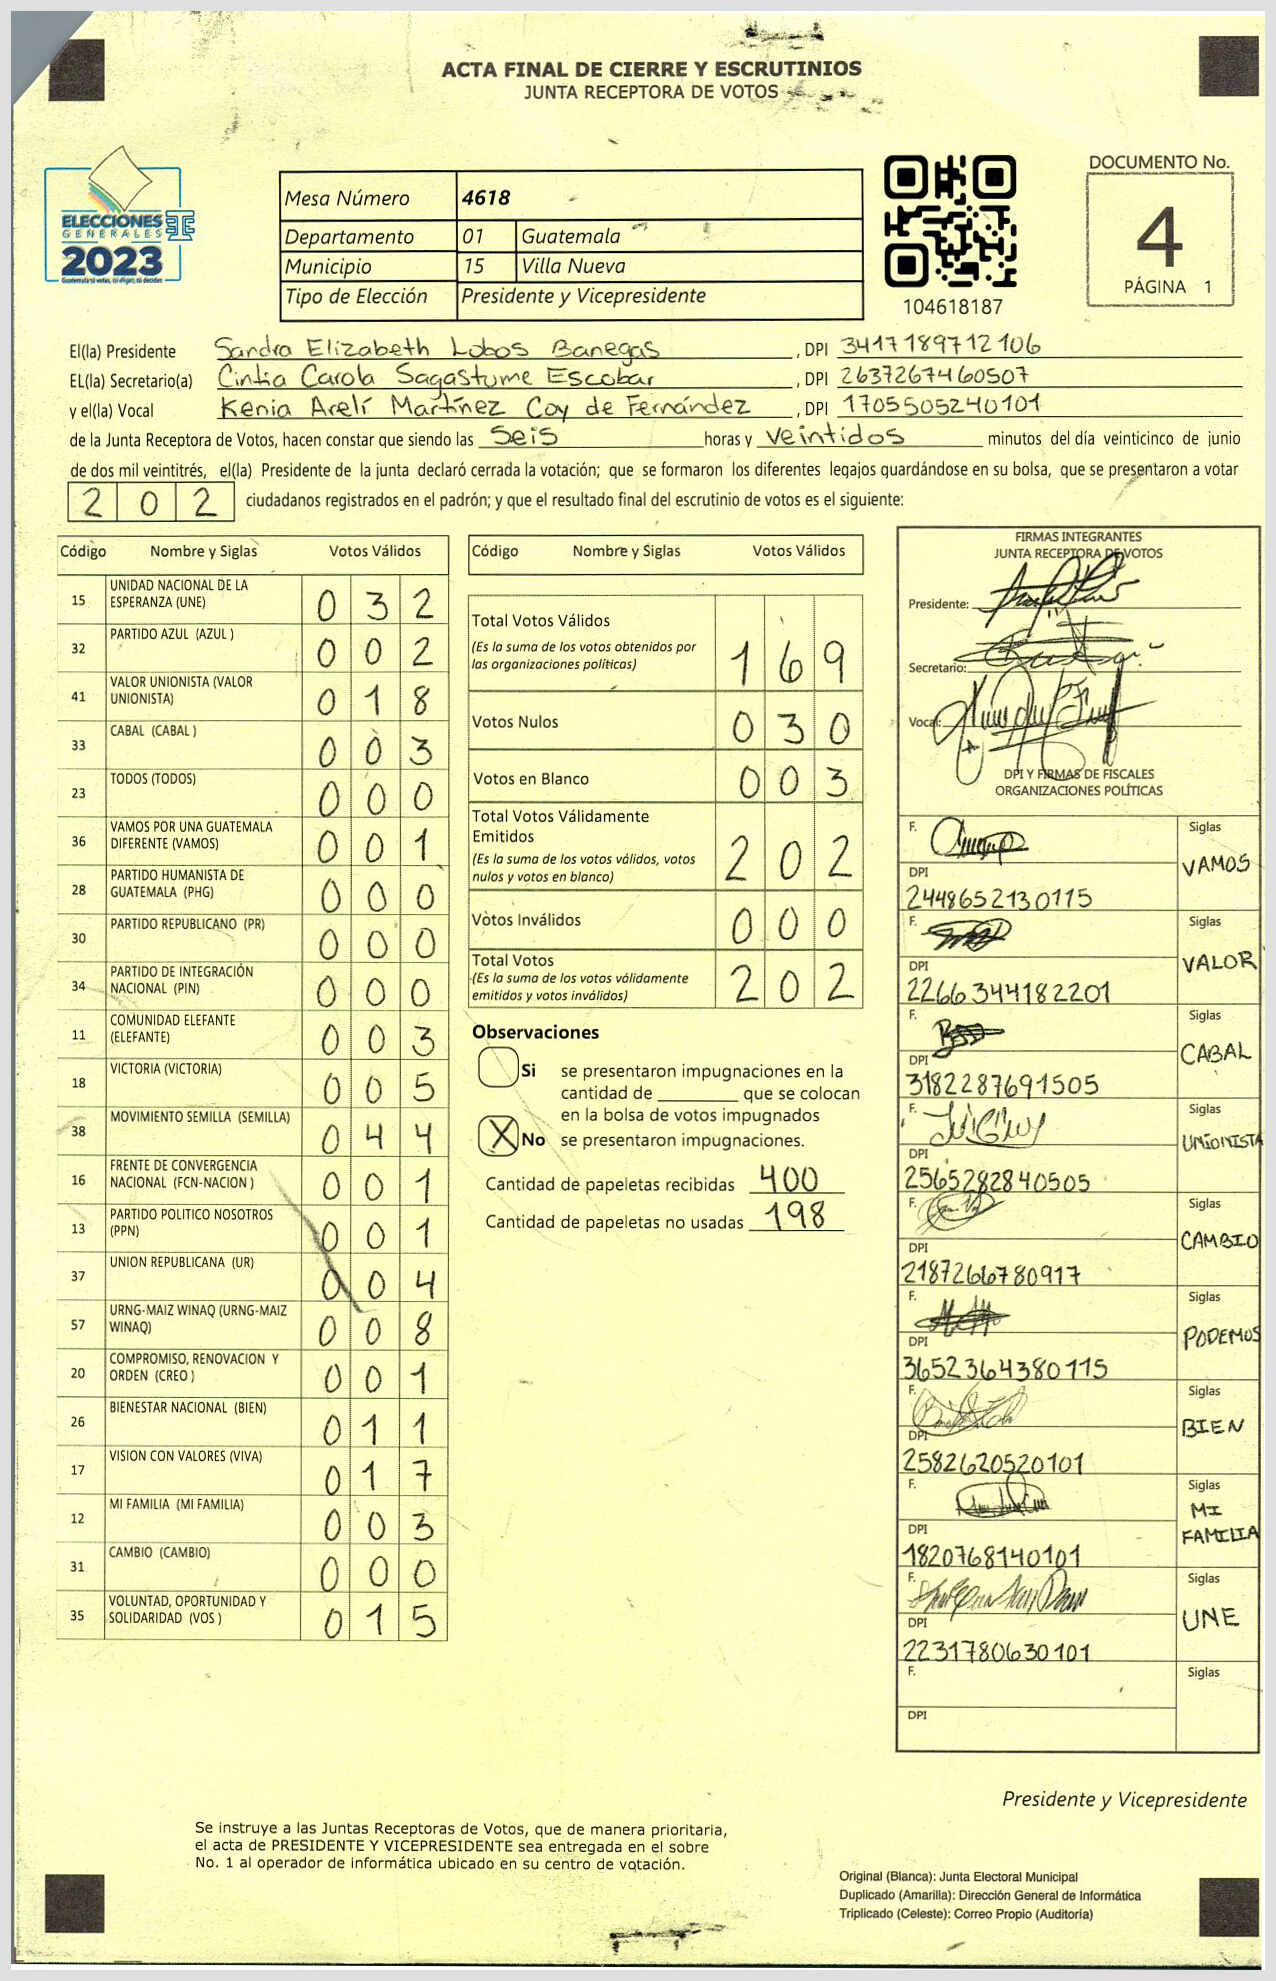 ACTA FINAL DE CIERRE Y ESCRUTINIOS
JUNTA RECEPTORA DE VOTOS
ELECCIONES
GENERALES
2023
Mesa Número 4618
Departamento 01 Guatemala
Municipio 15 Villa Nueva
Tipo de Elección Presidente y Vicepresidente
104618187
DOCUMENTO No.
4
PÁGINA 1
El(la) Presidente Sandra Elizabeth Lobos Banegas, DPI 3417189712106
EL(la) Secretario(a) Cintia Carola Sagastume Escobar, DPI 2637267460507
y el(la) Vocal Kenia Arelí Martínez Coy de Fernández, DPI 1705505240101
de la Junta Receptora de Votos, hacen constar que siendo las Seis horas y veintidos minutos del día veinticinco de junio
de dos mil veintitrés, el(la) Presidente de la junta declaró cerrada la votación; que se formaron los diferentes legajos guardándose en su bolsa, que se presentaron a votar
202 ciudadanos registrados en el padrón; y que el resultado final del escrutinio de votos es el siguiente:
Código Nombre y Siglas Votos Válidos
15 UNIDAD NACIONAL DE LA ESPERANZA (UNE) 032
32 PARTIDO AZUL (AZUL ) 002
41 VALOR UNIONISTA (VALOR UNIONISTA) 018
33 CABAL (CABAL ) 003
23 TODOS (TODOS) 000
36 VAMOS POR UNA GUATEMALA DIFERENTE (VAMOS) 001
28 PARTIDO HUMANISTA DE GUATEMALA (PHG) 000
30 PARTIDO REPUBLICANO (PR) 000
34 PARTIDO DE INTEGRACIÓN NACIONAL (PIN) 000
11 COMUNIDAD ELEFANTE (ELEFANTE) 003
18 VICTORIA (VICTORIA) 005
38 MOVIMIENTO SEMILLA (SEMILLA) 044
16 FRENTE DE CONVERGENCIA NACIONAL (FCN-NACION ) 001
13 PARTIDO POLITICO NOSOTROS (PPN) 001
37 UNION REPUBLICANA (UR) 004
57 URNG-MAIZ WINAQ (URNG-MAIZ WINAQ) 008
20 COMPROMISO, RENOVACION Y ORDEN (CREO ) 001
26 BIENESTAR NACIONAL (BIEN) 011
17 VISION CON VALORES (VIVA) 017
12 MI FAMILIA (MI FAMILIA) 003
31 CAMBIO (CAMBIO) 000
35 VOLUNTAD, OPORTUNIDAD Y SOLIDARIDAD (VOS ) 015
Código Nombre y Siglas Votos Válidos
Total Votos Válidos 169
(Es la suma de los votos obtenidos por
las organizaciones políticas)
Votos Nulos 030
Votos en Blanco 003
Total Votos Válidamente
Emitidos 202
(Es la suma de los votos válidos, votos
nulos y votos en blanco)
Votos Inválidos 000
Total Votos 202
(Es la suma de los votos válidamente
emitidos y votos inválidos)
Observaciones
Si se presentaron impugnaciones en la
cantidad de ________ que se colocan
en la bolsa de votos impugnados
X No se presentaron impugnaciones.
Cantidad de papeletas recibidas 400
Cantidad de papeletas no usadas 198
FIRMAS INTEGRANTES
JUNTA RECEPTORA DE VOTOS
Presidente:
Secretario:
Vocal:
DPI Y FIRMAS DE FISCALES
ORGANIZACIONES POLÍTICAS
F. Siglas VAMOS
DPI 2448652130115
F. Siglas VALOR
DPI 2266344182201
F. Siglas CABAL
DPI 3182287691505
F. Siglas UNIONISTA
DPI 2565282840505
F. Siglas CAMBIO
DPI 2187266780917
F. Siglas PODEMOS
DPI 3652364380115
F. Siglas BIEN
DPI 2582620520101
F. Siglas MI FAMILIA
DPI 1820768140101
F. Siglas UNE
DPI 2231780630101
F. Siglas
DPI
Presidente y Vicepresidente
Se instruye a las Juntas Receptoras de Votos, que de manera prioritaria,
el acta de PRESIDENTE Y VICEPRESIDENTE sea entregada en el sobre
No. 1 al operador de informática ubicado en su centro de votación.
Original (Blanca): Junta Electoral Municipal
Duplicado (Amarilla): Dirección General de Informática
Triplicado (Celeste): Correo Propio (Auditoría)